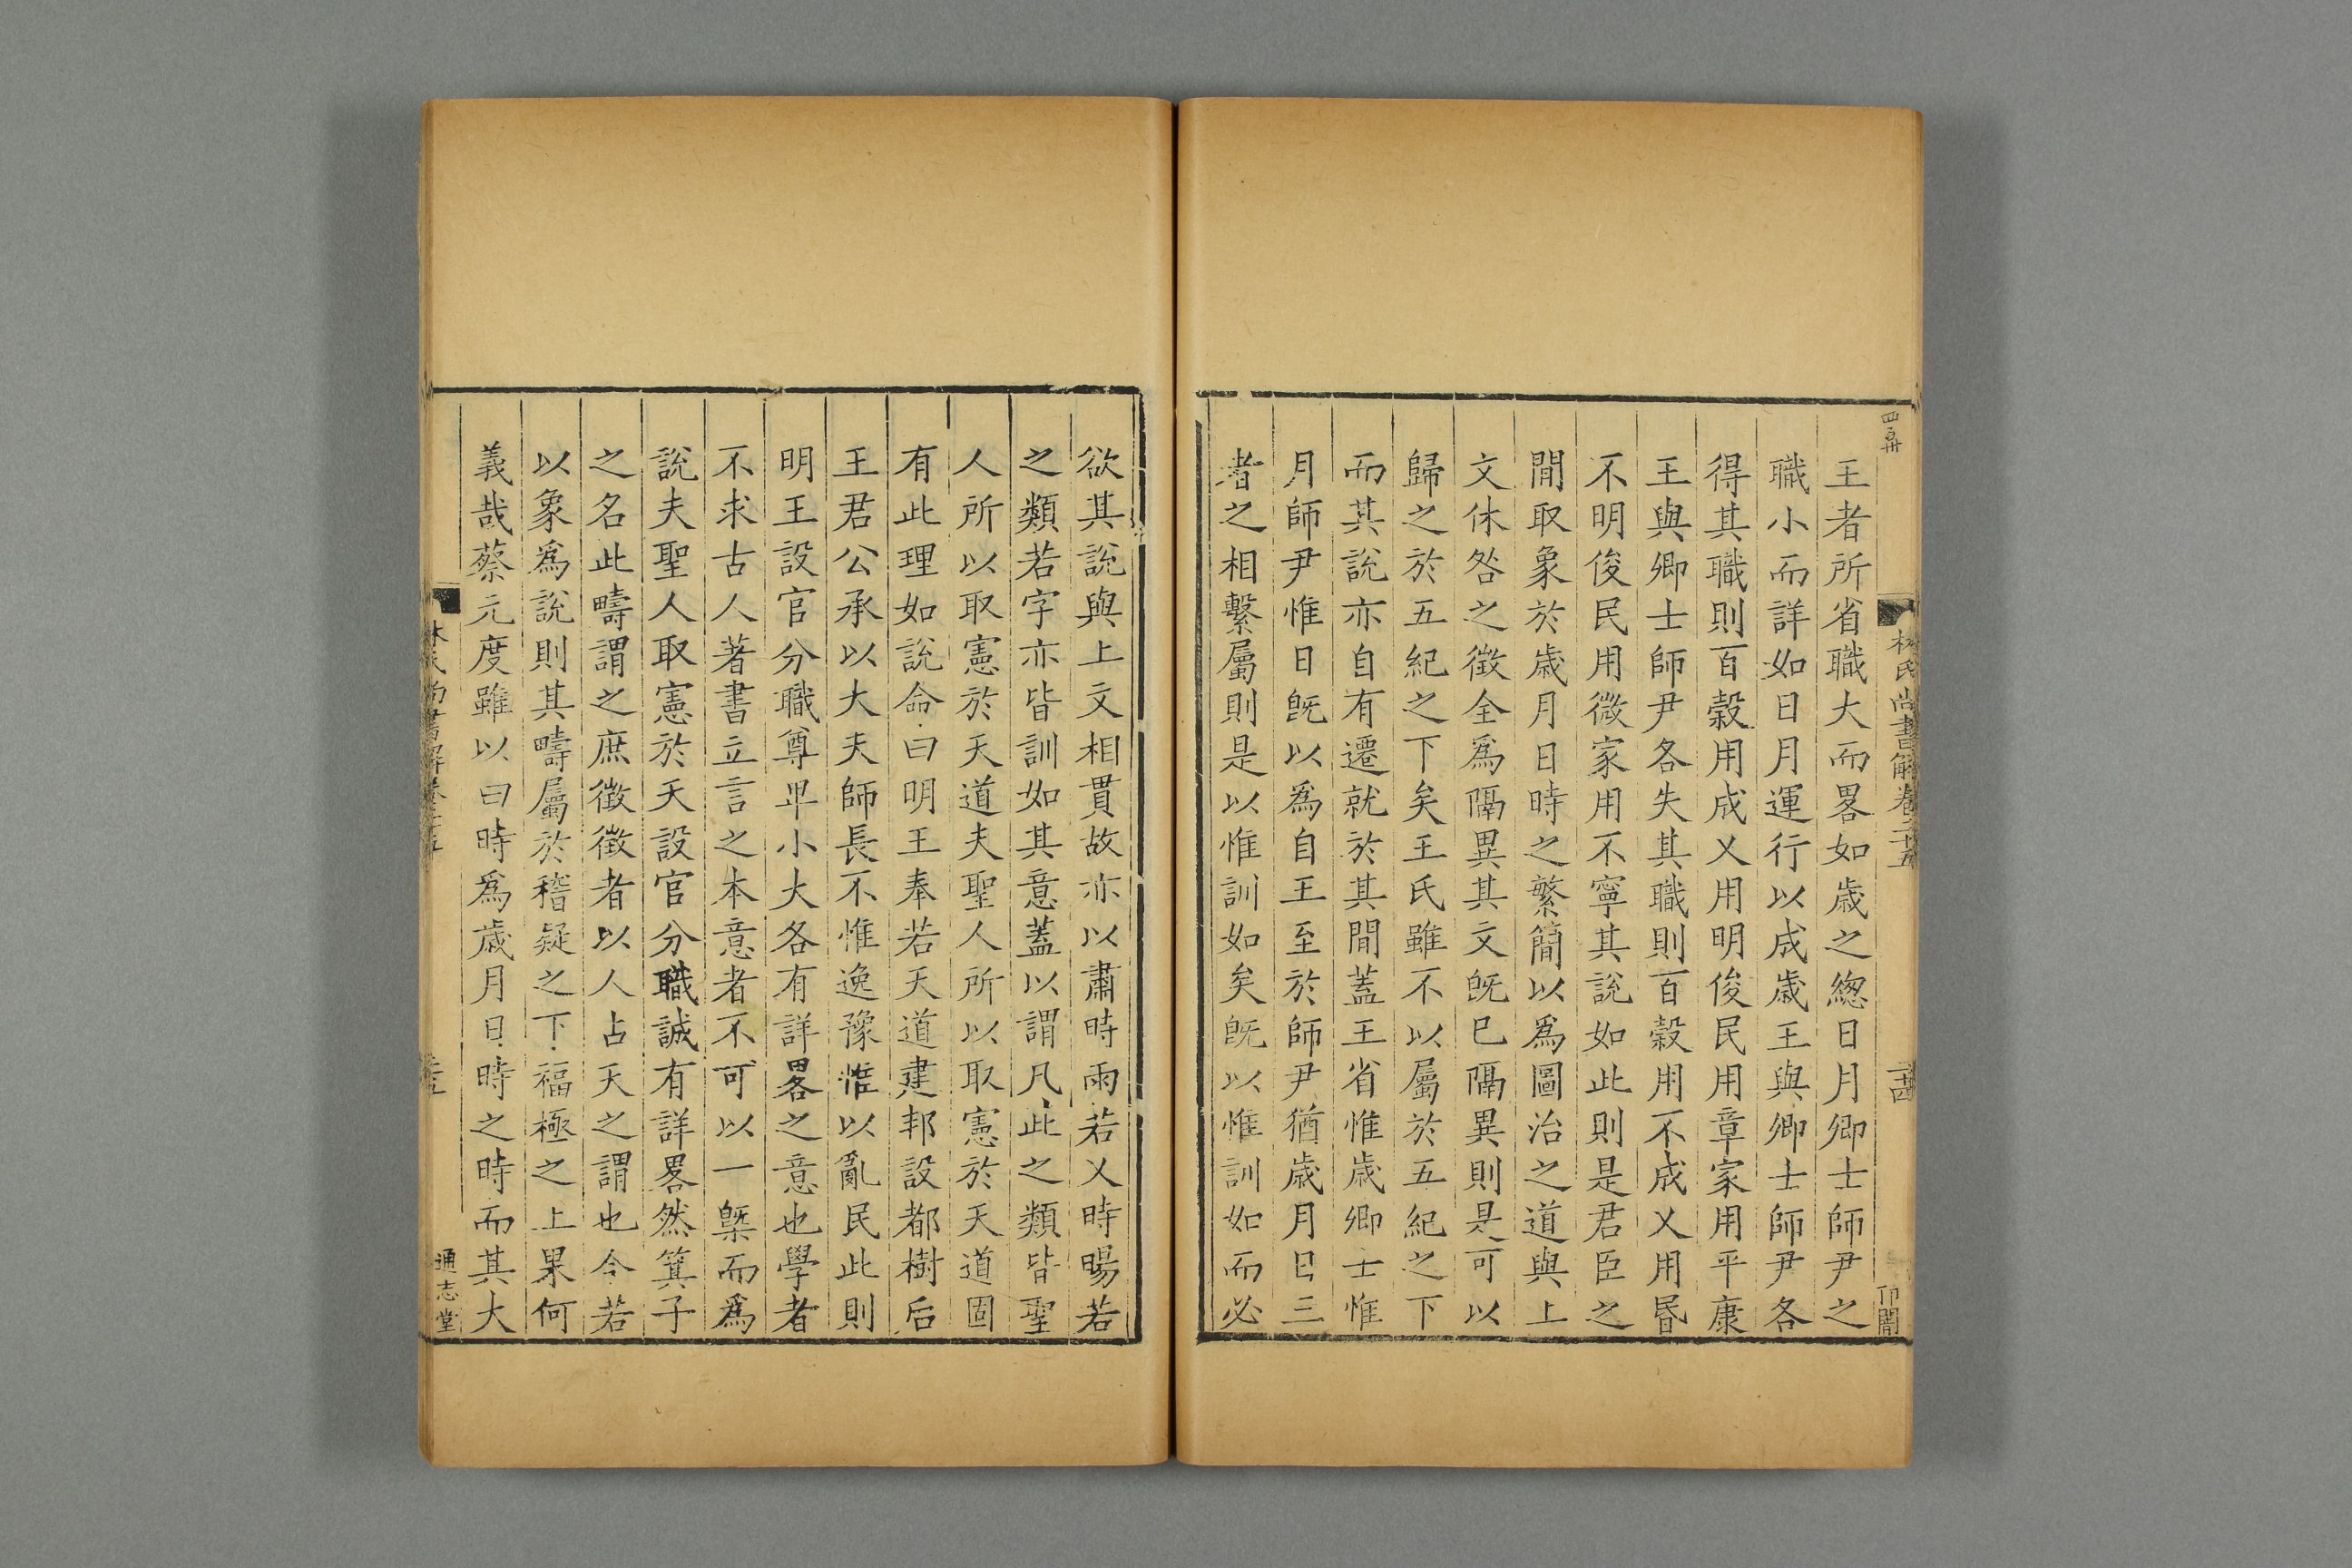 林氏尚書解卷二十五
二十四
王者所省職大而畧如歳之緫日月卿士師尹之
職小而詳如日月運行以成歳王與卿士師尹各
得其職則百穀用成乂用明俊民用章家用平康
王與卿士師尹各失其職則百穀用不成乂用昬
不明俊民用微家用不寧其說如此則是君臣之
閒取象於歳月日時之繁簡以爲圖治之道與上
文休咎之徴全爲隔異其文既巳隔異則是可以
歸之於五紀之下矣王氏雖不以屬於五紀之下
而其說亦自有遷就於其閒蓋王省惟歳卿士惟
月師尹惟日既以爲自王至於師尹猶歳月日三
者之相繫屬則是以惟訓如矣既以惟訓如而必
欲其說與上文相貫故亦以肅時雨若乂時暘若
之類若字亦皆訓如其意蓋以謂凡此之類皆聖
人所以取憲於天道夫聖人所以取憲於天道固
有此理如說命曰明王奉若天道建邦設都樹后
王君公承以大夫師長不惟逸豫惟以亂民此則
明王設官分職尊卑小大各有詳畧之意也學者
不求古人著書立言之本意者不可以一槩而爲
說夫聖人取憲於天設官分職誠有詳畧然箕子
之名此疇謂之庶徴徴者以人占天之謂也今若
以象爲說則其疇屬於稽疑之下福極之上果何
義哉蔡元度雖以曰時爲歳月日時之時而其大
林氏尚書解卷二十五
通志堂